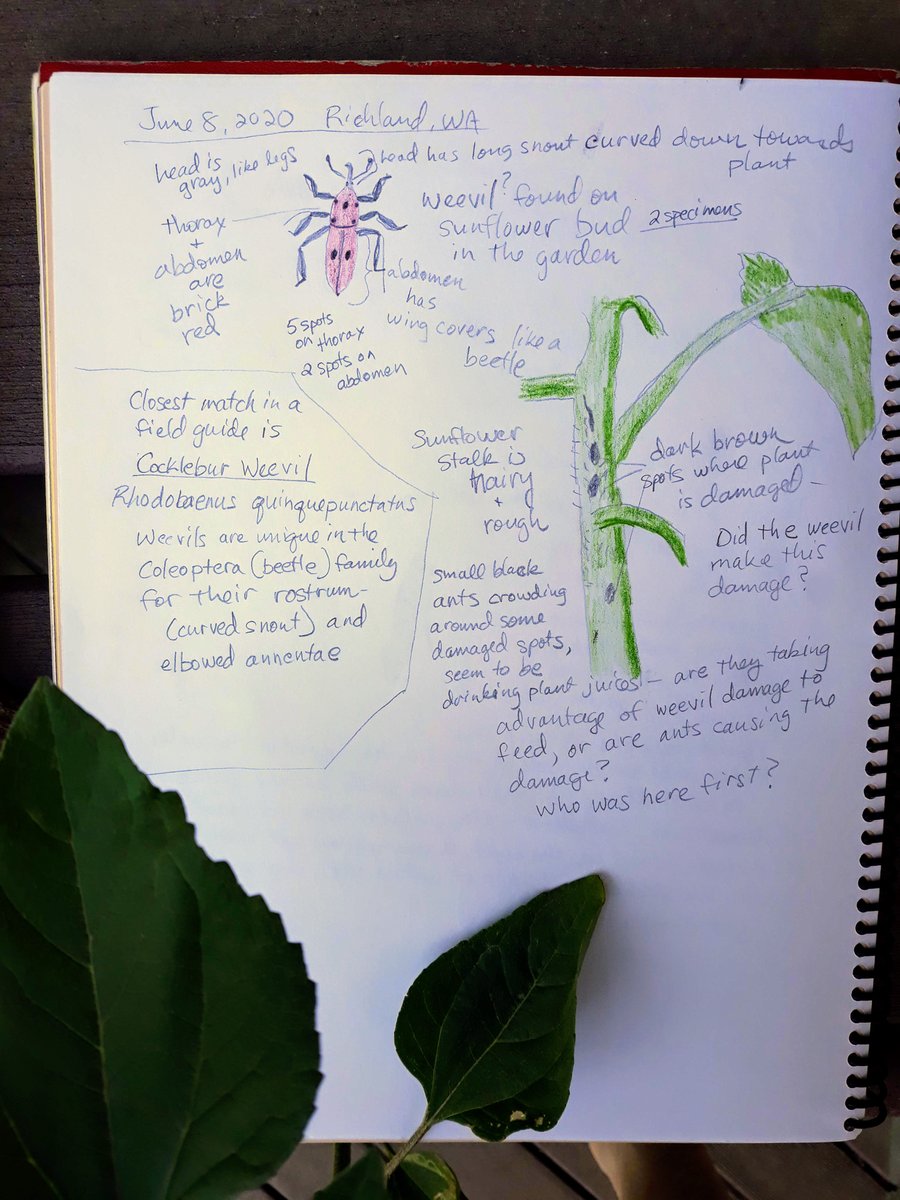 June 8, 2020 Richland, WA
head is
gray, like legs
head has long snout curved down towards
plant
thorax
+
abdomen
are
brick
red
weevil? found on
sunflower bud 2 specimens
in the garden
abdomen
has
wing covers like a
beetle
5 spots
on thorax
2 spots on
abdomen
Closest match in a
field guide is
Cocklebur Weevil
Rhodobaenus quinquepunctatus
Weevils are unique in the
Coleoptera (beetle) family
for their rostrum-
(curved snout) and
elbowed annentae
Sunflower
stalk is
hairy
+
rough
dark brown
spots where plant
is damaged -
Did the weevil
make this
damage?
small black
ants crowding
around some
damaged spots,
seem to be
drinking plant juices - are they taking
advantage of weevil damage to
feed, or are ants causing the
damage?
Who was here first?